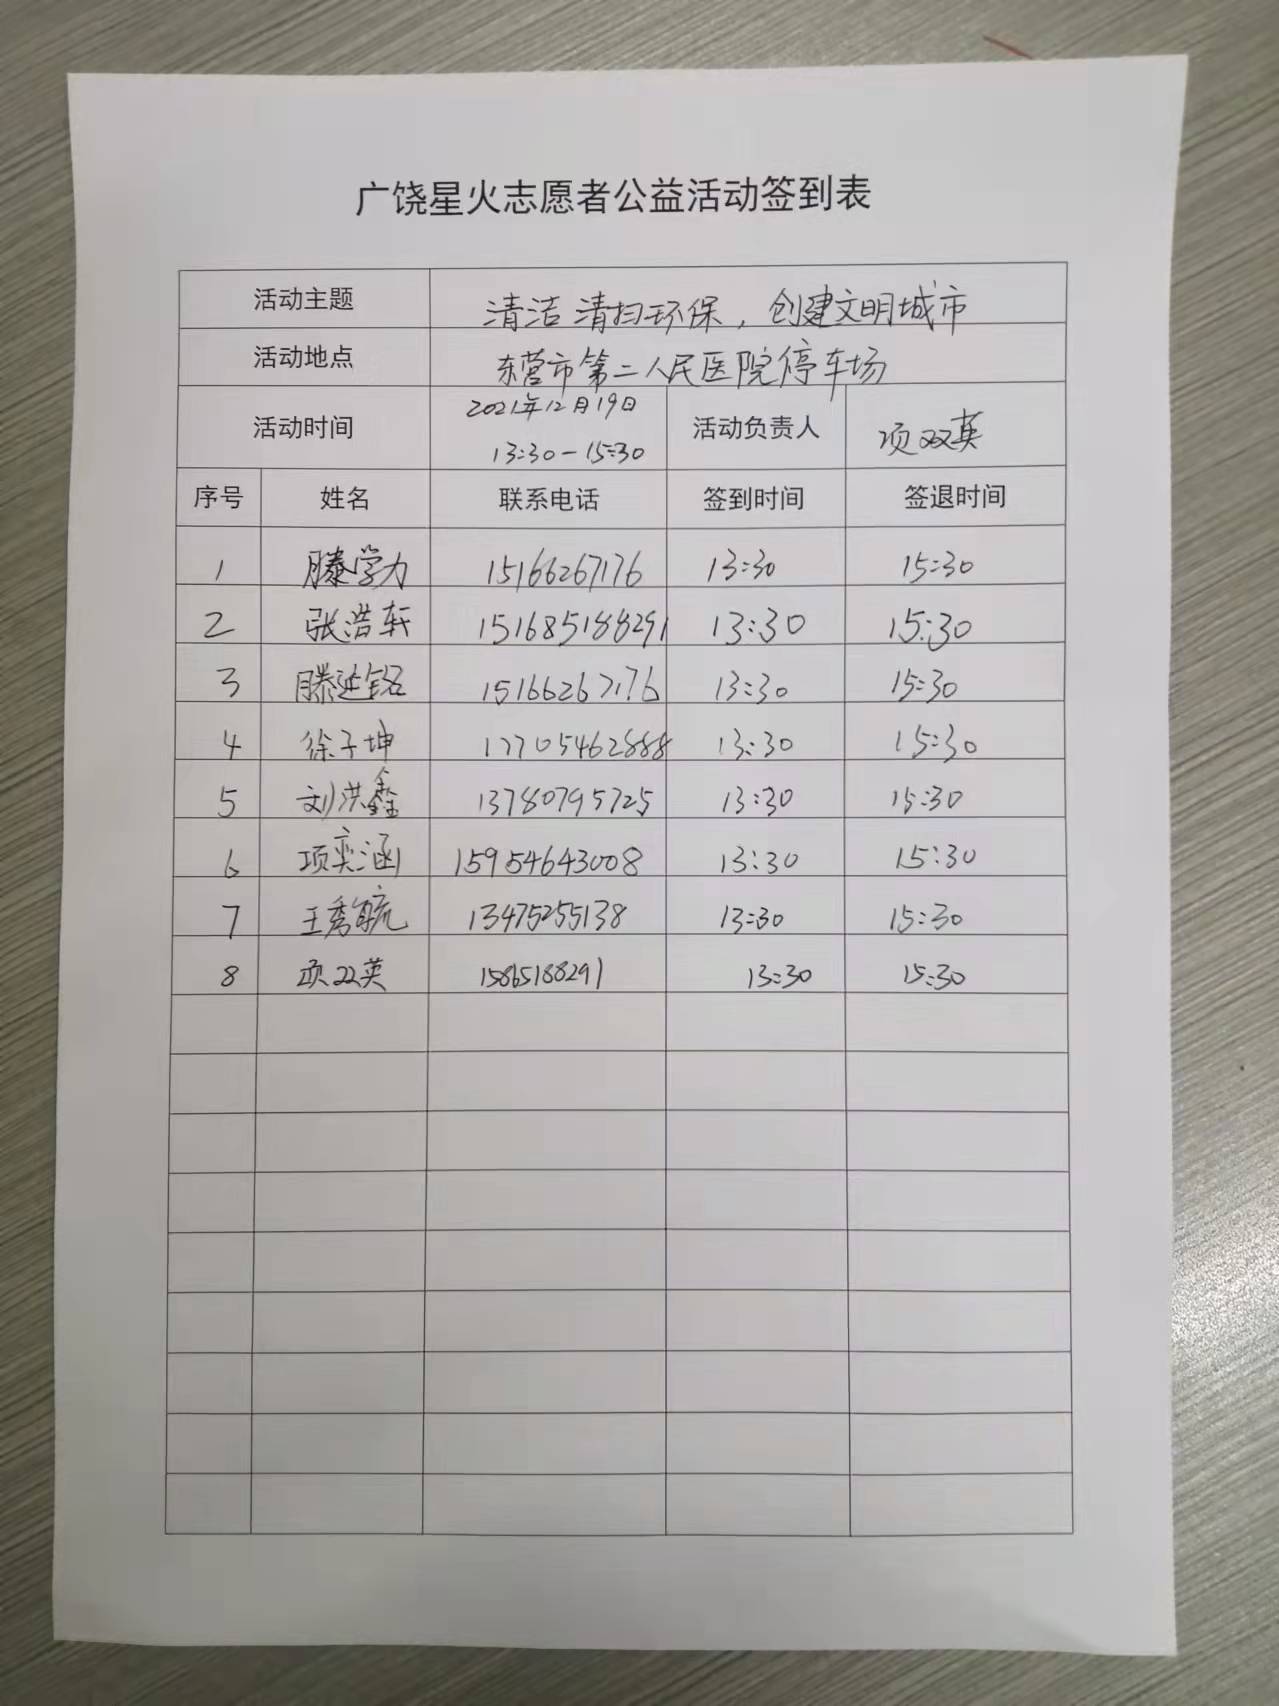 广饶星火志愿者公益活动签到表
活动主题 清洁清扫环保，创建文明城市
活动地点 东营市第二人民医院停车场
活动时间 2021年12月19日 13:30-15:30 活动负责人 项双英
序号 姓名 联系电话 签到时间 签退时间
1 滕学力 15166267176 13:30 15:30
2 张浩轩 151685188291 13:30 15:30
3 滕延铭 15166267176 13:30 15:30
4 徐子坤 17705462888 13:30 15:30
5 刘洪鑫 13780795725 13:30 15:30
6 项奕涵 15954643008 13:30 15:30
7 王秀毓 13475255138 13:30 15:30
8 项双英 15865188291 13:30 15:30